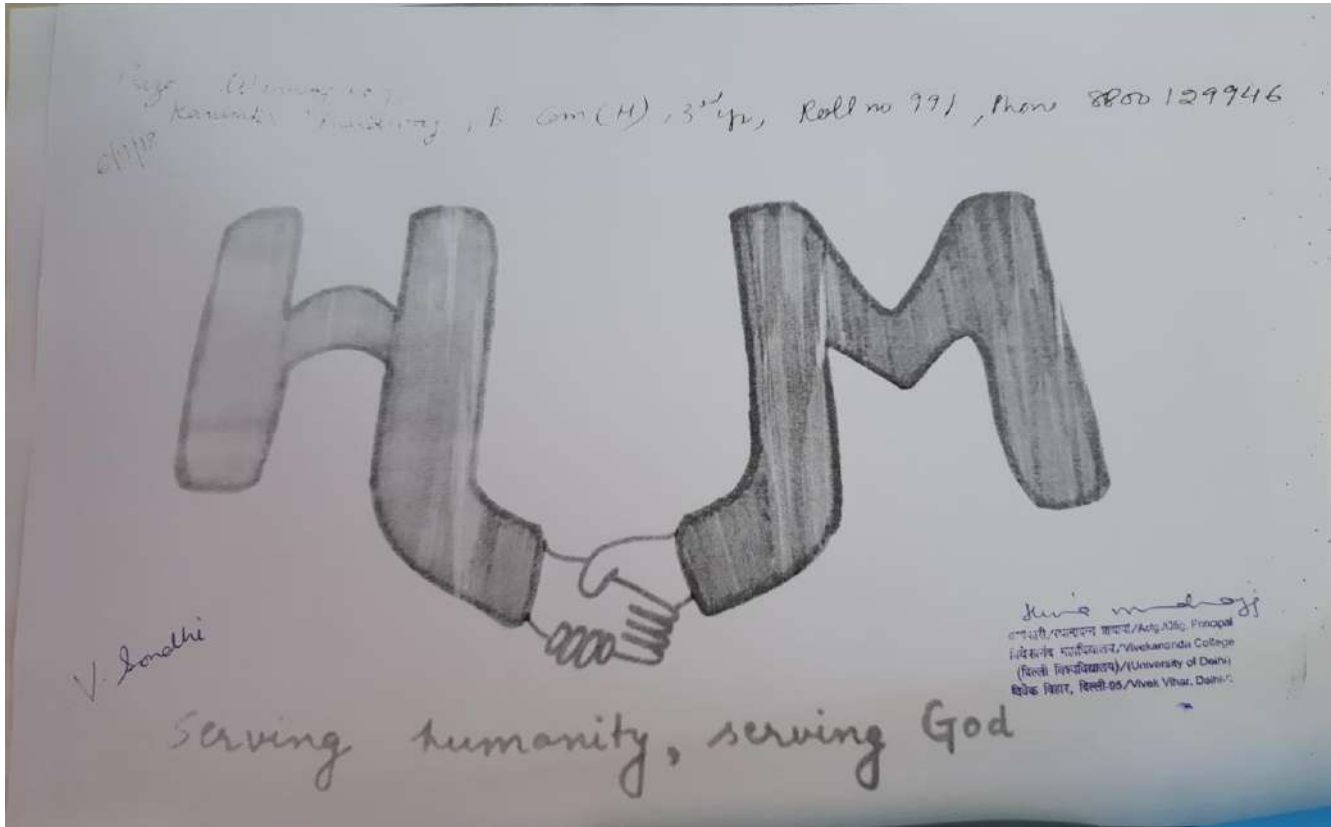 Prize
B Com (H), 3rd yr, Roll no 991, Phone 8800129946
6/9/18
HUM
V. Sondhi
/Actg./Offg. Principal
विवेकानंद महाविद्यालय/Vivekananda College
(दिल्ली विश्वविद्यालय)/(University of Delhi)
विवेक विहार, दिल्ली-95/Vivek Vihar, Delhi-
Serving humanity, serving God